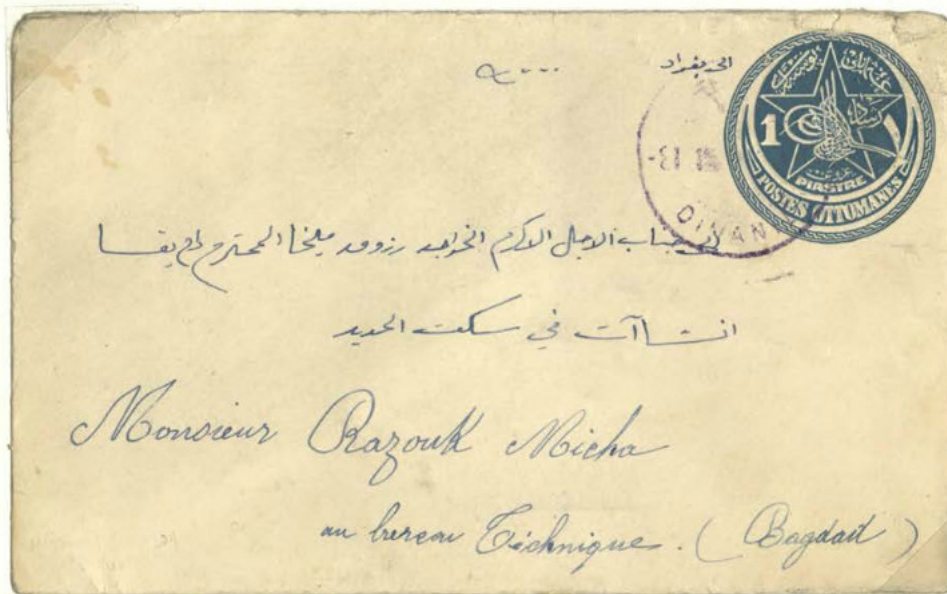 الى بغداد
1
PIASTRE
POSTES OTTOMANES
DIVAN
جناب الاجل الاكرم الخواجه رزوق ميخا المحترم
انشاآت في سكت الحديد
Monsieur Razouk Micha
au bureau Téchnique. (Bagdad)